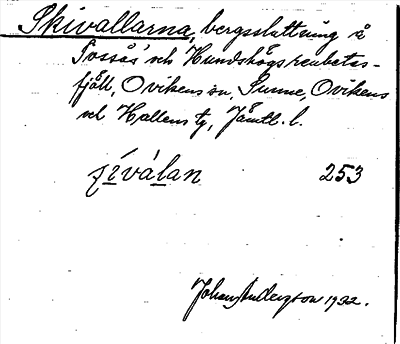 Skivallarna, bergssluttning å
Fossås' och Hundshögs renbetes-
fjäll, Ovikens sn, Sunne, Ovikens
och Hallens tg, Jämtl. l.
ʃíválan 253
Johan Anderzson 1932.